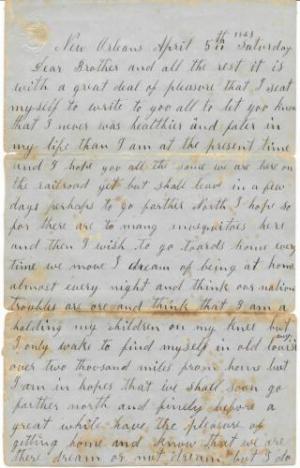 New Orleans April 5th 1863 Saturday
Dear Brother and all the rest it is
with a great deal of pleasure that I seat
myself to write to yoo all to let yoo know
that I never was healthier and fater in
my life than I am at the present time
and I hope yoo all the same we are here on
the railroad yet but shall leave in a few
days perhaps to go farther North I hope so
for there are to many musquitoes here
and then I wish to go toards home every
time we move I dream of being at home
almost every night and think our nations
troubles are ore and think that I am a
holding my children on my knee but
I only wake to find myself in old
over two thousand miles from home but
I am in hopes that we shall soon go
farther north and finely before a
great while have the pleasure of
getting home and know that we are
there dream or not dream but I do